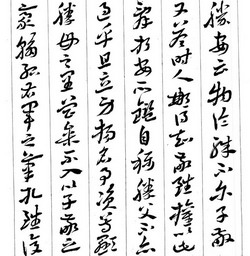 勝安云物論殊不爾子敬
又答時人那得知敬雖權以此
辭折安所鑒自稱勝父不亦
過乎且立身揚名事資尊顯
勝母之里曾參不入以子敬之
豪翰紹右軍之筆札雖復